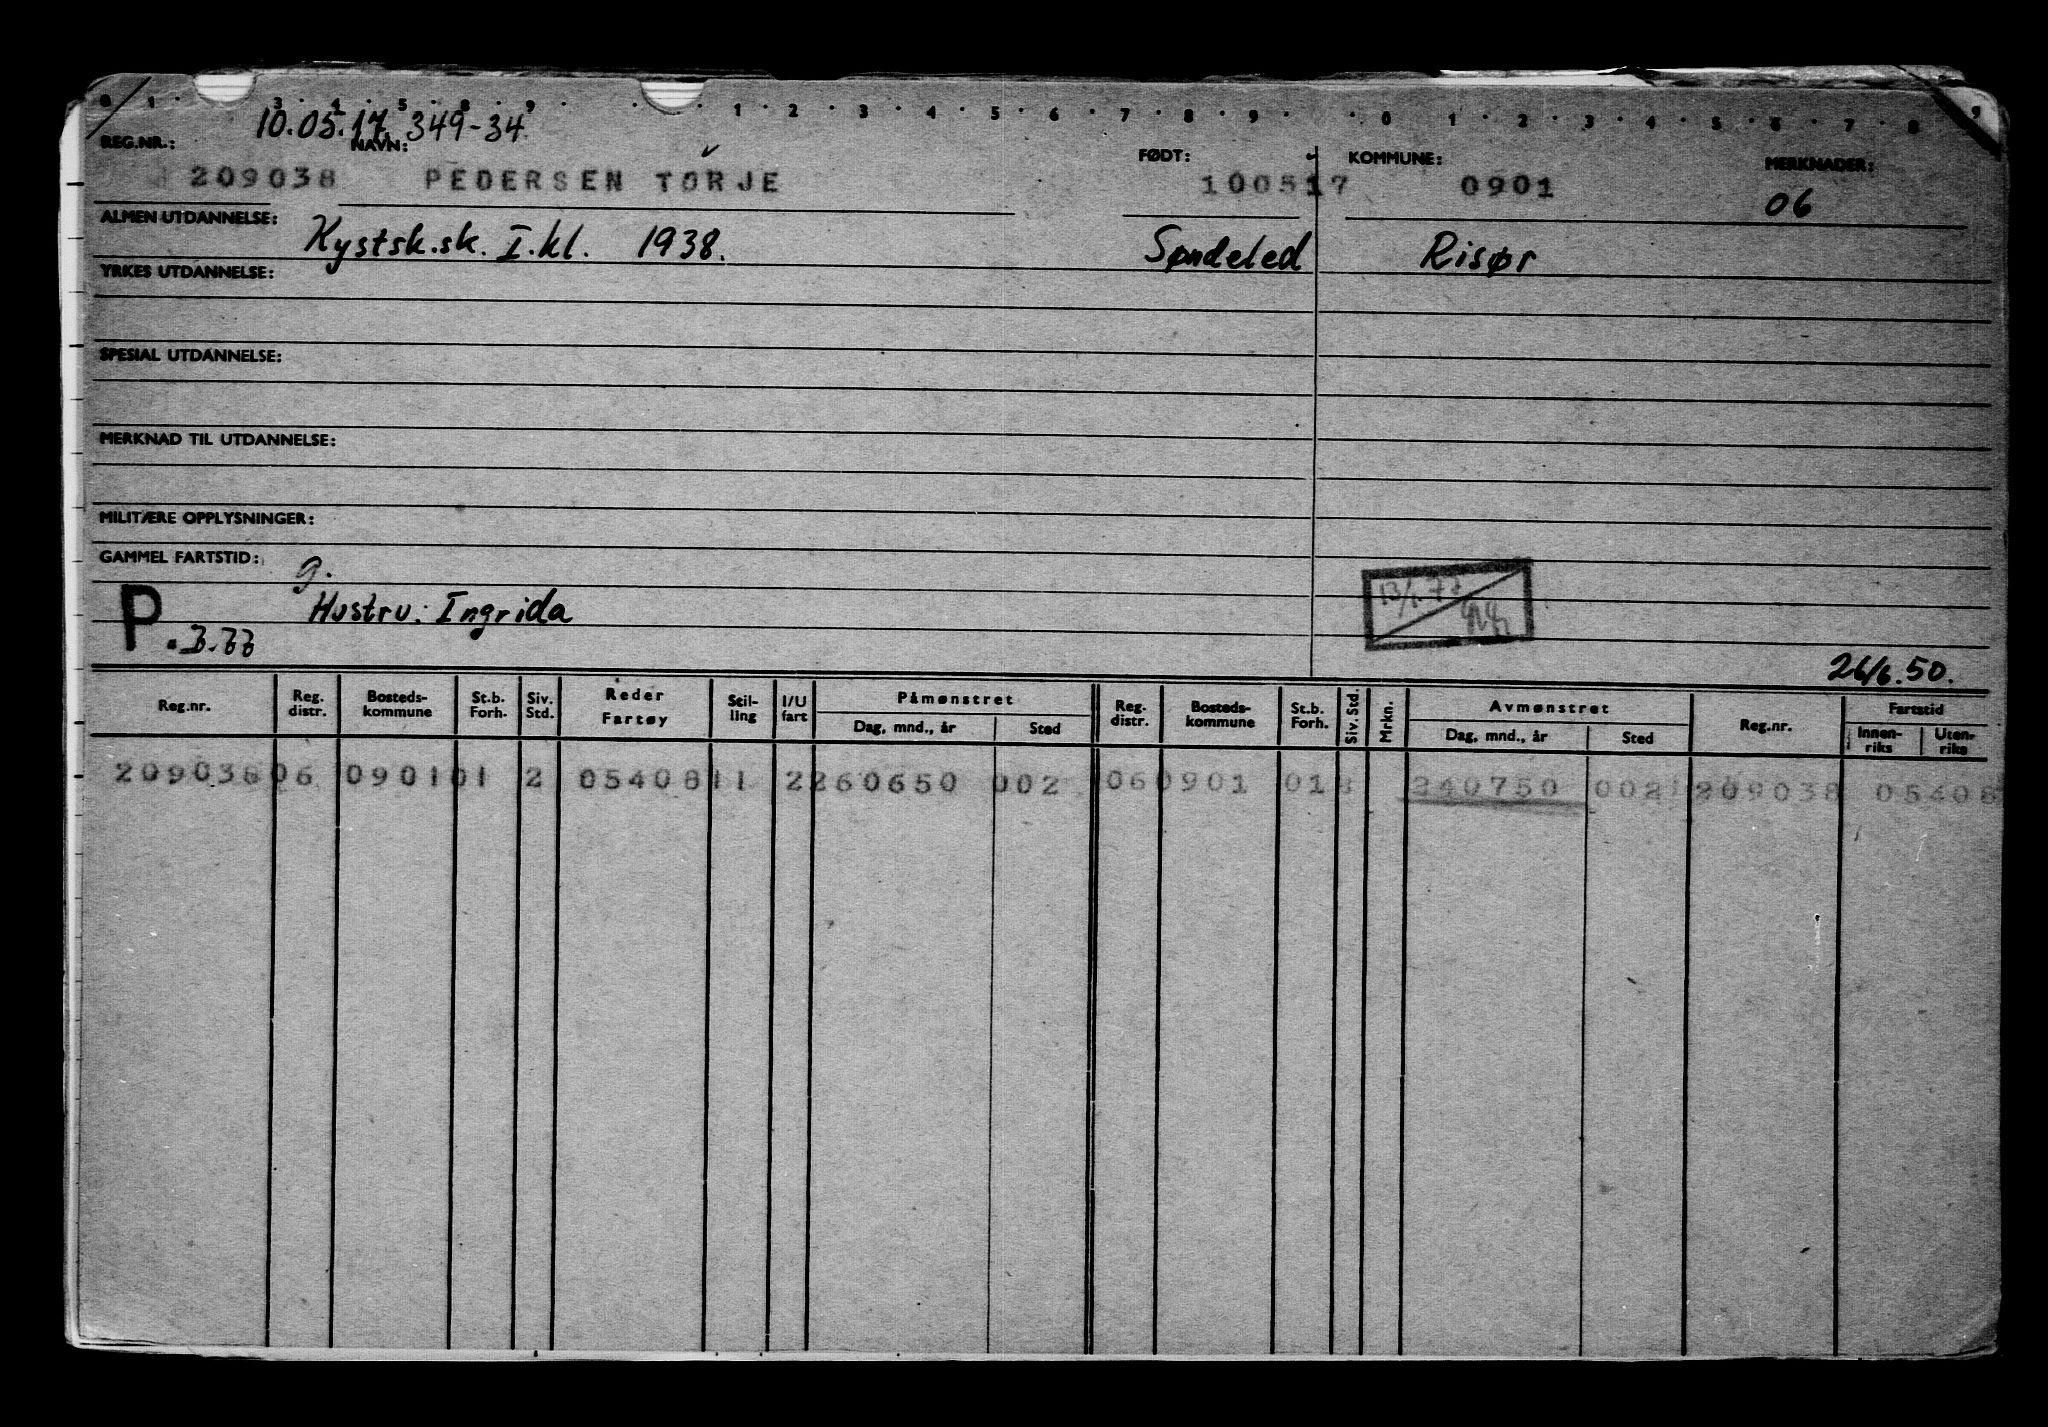 0 1 3 4 5 8 9 1 2 3 4 5 6 7 8 9 0 1 2 3 4 5 6 7 8 9
10.05.17. 349-34
REG.NR.: NAVN: FØDT: KOMMUNE: MERKNADER:
209038 PEDERSEN TORJE 100517 0901 06
ALMEN UTDANNELSE: Kystsk.sk. I.kl. 1938. Søndeled Risør
YRKES UTDANNELSE:
SPESIAL UTDANNELSE:
MERKNAD TIL UTDANNELSE:
MILITÆRE OPPLYSNINGER:
GAMMEL FARTSTID: g.
P Hustru: Ingrida
26/6.50.
Reg.nr. Reg. distr. Bosteds- kommune St.b. Forh. Siv. Std. Reder Fartøy Stil- ling I/U fart Påmønstret Dag, mnd., år Sted Reg. distr. Bosteds- kommune St.b. Forh. Siv. Std. Mrkn. Avmønstret Dag, mnd., år Sted Reg.nr. Fartstid Innen- riks Uten- riks
209038 06 0901 01 2 05408 11 2 260650 002 06 0901 01 240750 002 209038 05408